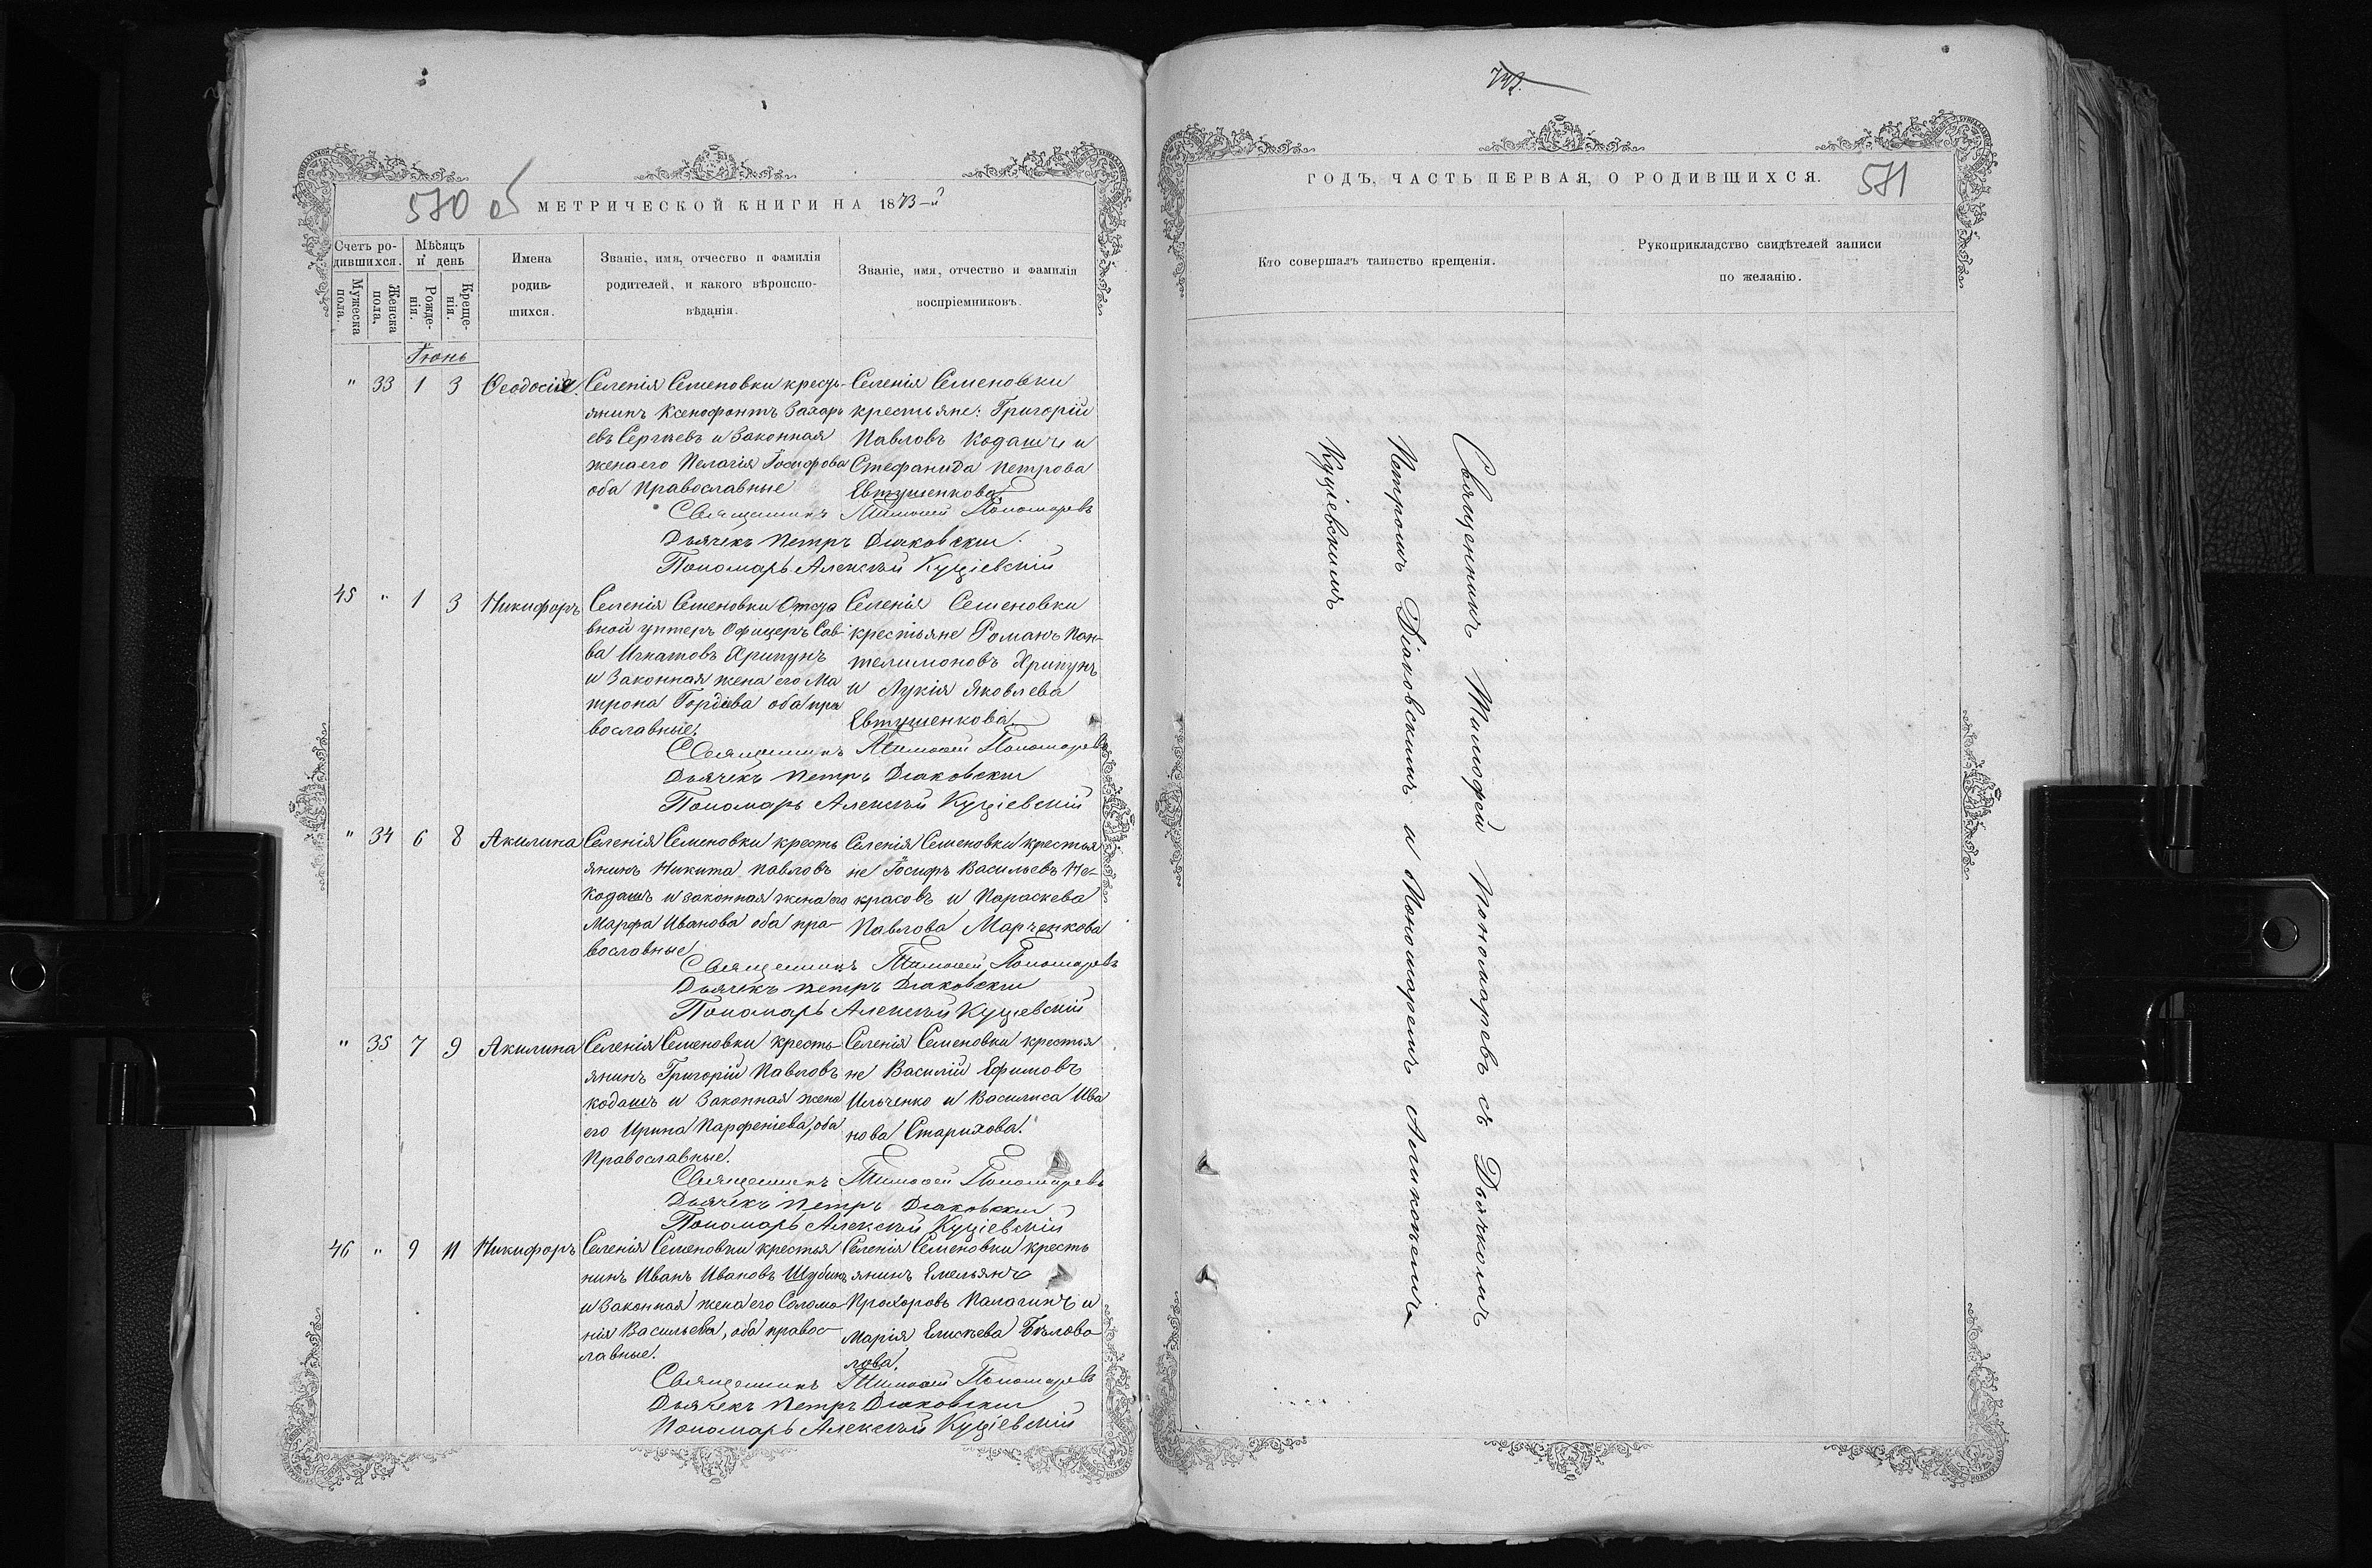 570 об
МЕТРИЧЕСКОЙ КНИГИ НА 1873-й
Счетъ ро-
дившихся.
Мужеска
пола.
Женска
пола.
Мѣсяцъ
и день
Рожде-
нія.
Креще-
нія.
Имена
родив-
шихся.
Званіе, имя, отчество и фамилія
родителей, и какого вѣроиспо-
вѣданія.
Званіе, имя, отчество и фамилія
воспріемниковъ.
Іюнь
" 33 1 3 Ѳеодосія.
Селенія Семеновки кресть-
янинъ Ксенофонтъ Захарь
евъ Сергѣевъ и Законная
жена его Пелагія Іосифова
оба Православные
Селенія Семеновки
крестьяне: Григорій
Павловъ Кодашъ и
Стефанида Петрова
Евтушенкова
Священникъ Тимоѳей Пономаревъ
Дьячекъ Петръ Діаковскій
Пономарь Алексѣй Куціевскій
45 " 1 3 Никифоръ
Селенія Семеновки Отста
вной унтеръ Офицеръ Сав
ва Игнатовъ Хрипунъ
и Законная жена его Ма
трона Гордѣева оба пра
вославные.
Селенія Семеновки
крестьяне Романъ Пан-
телимоновъ Хрипунъ
и Лукія Яковлева
Евтушенкова
Священникъ Тимоѳей Пономаревъ
Дьячекъ Петръ Діаковскій
Пономарь Алексѣй Куціевскій
" 34 6 8 Акилина
Селенія Семеновки кресть
янинъ Никита Павловъ
Кодашъ и законная жена его
Марфа Иванова оба пра-
вославные
Селенія Семеновки крестья
не Іосифъ Васильевъ Не-
красовъ и Параскева
Павлова Марченкова
Священникъ Тимоѳей Пономаревъ
Дьячекъ Петръ Діаковскій
Пономарь Алексѣй Куціевскій
" 35 7 9 Акилина
Селенія Семеновки кресть
янинъ Григорій Павловъ
кодашъ и Законная жена
его Ирина Парфеніева, оба
Православные.
Селенія Семеновки крестья
не Василій Ефимовъ
Ильченко и Василиса Ива
нова Старикова.
Священникъ Тимоѳей Пономаревъ
Дьячекъ Петръ Діаковскій
Пономарь Алексѣй Куціевскій
46 " 9 11 Никифоръ
Селенія Семеновки крестья
нинъ Иванъ Ивановъ Шубинъ
и Законная жена его Соломо
нія Васильева, оба правос-
лавные.
Селенія Семеновки кресть
янинъ Емельянъ
Прохоровъ Палагинъ и
Марія Елисѣева Бѣлова
лова.
Священникъ Тимоѳей Пономаревъ
Дьячекъ Петръ Діаковскій
Пономарь Алексѣй Куціевскій
ГОДЪ, ЧАСТЬ ПЕРВАЯ, О РОДИВШИХСЯ.
571
Кто совершалъ таинство крещенія.
Рукоприкладство свидѣтелей записи
по желанію.
Священникъ Тимофей Пономаревъ съ Дьячкомъ
Петромъ Діаковскимъ и Пономаремъ Алексѣемъ
Куціевскимъ